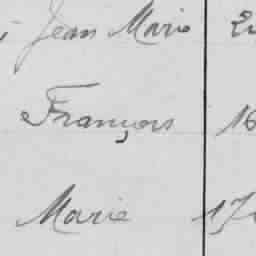 Jean Marie
François 16
Marie 17